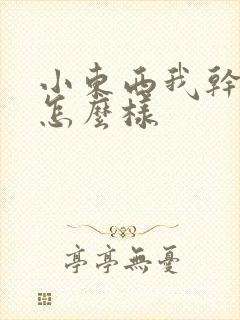 小東西我幹
怎麼樣
亭亭無憂